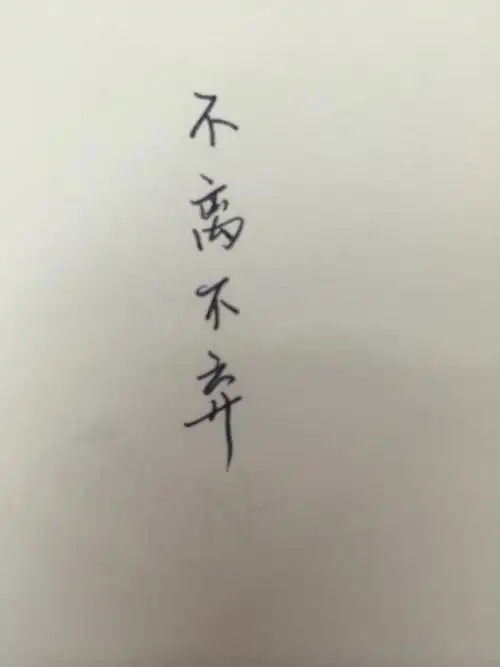 不离不弃